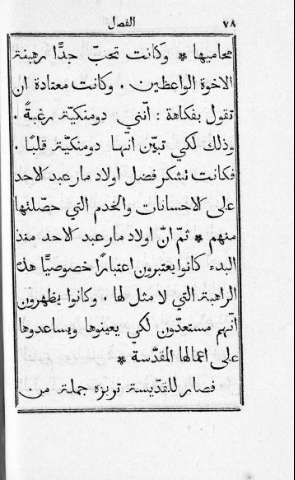 ٧٨ الفصل
محاميها * وكانت تحبّ جدًّا رهبنة
الاخوة الواعظين . وكانت معتادة ان
تقول بفكاهة : أنّني دومنكيّة رغبةً .
وذلك لكي تبيّن انّها دومنكيّة قلبًا .
فكانت تشكر فضل اولاد مار عبد الاحد
على الاحسانات والخدم التي حصلتها
منهم * ثمّ انّ اولاد مار عبد الاحد منذ
البدء كانوا يعتبرون اعتبارًا خصوصيًّا هذه
الراهبة التي لا مثل لها . وكانوا يظهرون
انّهم مستعدّون لكي يعينوها ويساعدوها
على اعمالها المقدّسة *
فصار للقدّيسة تريزه جملة من